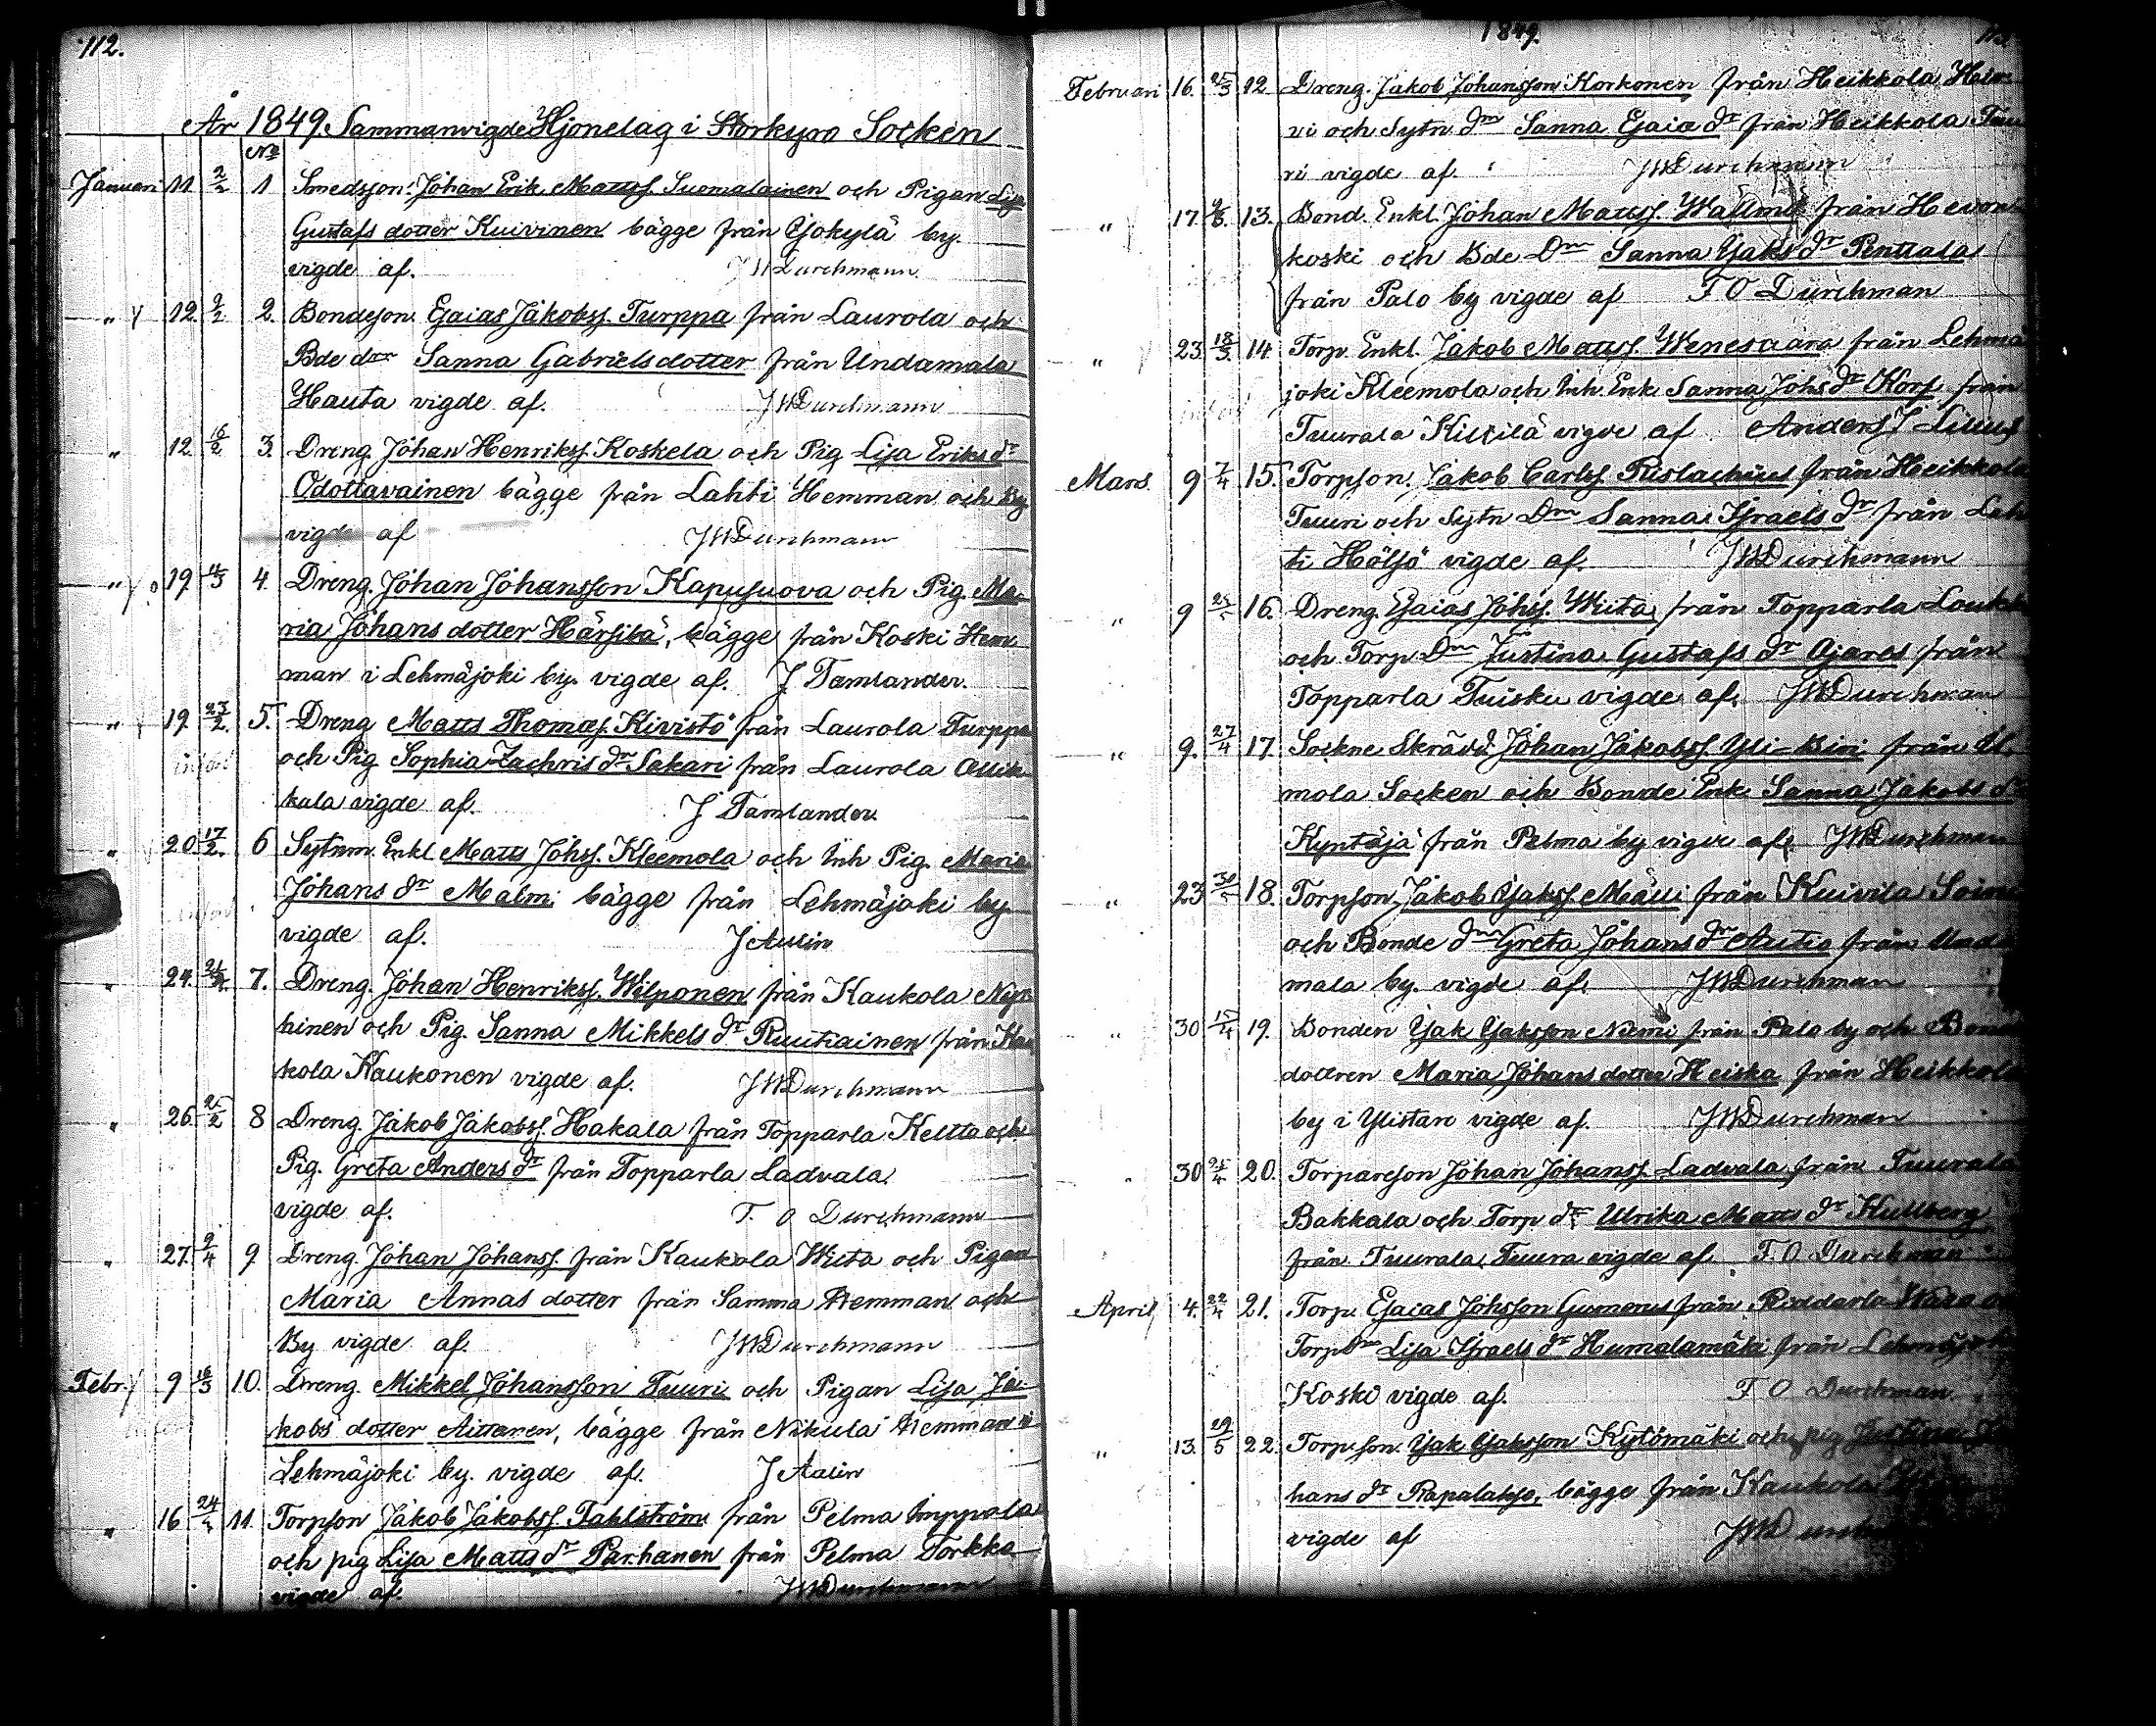 112.
År 1849 Sammanvigde Hjonelag i Storkyro Socken
No
Januari 11. 2/2 1 Smedsson. Johan Erik Mattss. Suomalainen och Pigan Lisa
Gustafs dotter Kuivinen bägge från Yokylä by.
vigde af. JWDurchmann
" 12 9/2 2. Bondeson. Esaias Jakobss. Turppa från Laurola och
Bde dtr Sanna Gabrielsdotter från Undamala
Hauta vigde af. JWDurchmann
" 12 16/2 3. Dreng. Johan Henrikss. Koskela och Pig Lisa Eriks dr
Odottavainen bägge från Lahti Hemman och By
vigde af JWDurchmann
" 19. 4. Dreng. Johan Johansson Kapusuova och Pig. Ma-
ria Johans dotter Härsilä, bägge från Koski Hem
man i Lehmäjoki by. vigde af. J Tamlander.
" 19. 23/2. 5. Dreng Matts Thomass. Kivistö från Laurola Turppa
och Pig Sophia Zachris dr Sakari från Laurola Ollik
kala vigde af. J Tamlander.
" 20 17/2. 6 Sytnm. Enkl Matts Johss. Kleemola och Inh Pig. Maria
Johans dr Malm bägge från Lehmäjoki by
vigde af. J Aulin
" 24. 7. Dreng. Johan Henrikss. Wilponen från Kaukola Nyr
hinen och Pig. Sanna Mikkels dr Ruutiainen från Kau
kola Kaukonen vigde af. JWDurchmann
" 26. 25/2 8 Dreng. Jakob Jakobss. Hakala från Topparla Keltto och
Pig. Greta Anders dr från Topparla Ladvala.
vigde af. F. O Durchmann
" 27. 9/4 9 Dreng. Johan Johanss. från Kaukola Wiita och Pigan
Maria Annas dotter från Samma Hemman och
By vigde af. JWDurchmann
Febr. 9 16/3 10. Dreng. Mikkel Johansson Tuuri och Pigan Lisa Ja-
kobs dotter Aittanen, bägge från Nikula Hemman i
Lehmäjoki by. vigde af. J Aalin
" 16 11. Torpson Jakob Jakobss. Fahlström från Pelma Imppola
och pig Lisa Matts dr Parhanen från Pelma Torkko
vigde af. JWDurchmann
1849.
Februari 16. 25/3 12 Dreng. Jakob Johansson Korkonen från Heikkola Hein
vi och Sytn dm Sanna Esaiæ dr från Heikkola Tuu
ri vigde af. JWDurchmann
" 17. 13. Bond. Enkl. Johan Mattss. Wallmo från Hevon
koski och Bde Dm Sanna Jaks dr Penttala
från Palo by vigde af F O Durchman
" 23. 18/3 14 Torp. Enkl. Jakob Mattss. Wenesvaara från Lehmä
joki Kleemola och Inh. Enk Sanna Johs dr Korp från
Tuurala Kiikilä vigde af Anders J Lilius
Mars. 9 7/4 15. Torpson. Jakob Carlss. Rislachius från Heikkola
Tuuri och Sytn Dm Sanna Israels dr från Leh
ti Höljö vigde af. JWDurchmann
" 9 16. Dreng. Esaias Johss. Wiita från Topparla Loukk
och Torp Dm Justina Gustafs dr Ojares från
Topparla Tuisku vigde af. JWDurchman
" 9. 27/4 17. Sockne Skrädd. Johan Jakobss. Yli-Kiri från Il-
mola Socken och Bonde Enk. Sanna Jakobs dr
Kyntäjä från Pelma by vigde af. JWDurchman
" 23 18. Torpson. Jakob Jakss. Mälli från Kuivila Soini
och Bonde dm Greta Johans dr Autio från Unda
mala by. vigde af. JWDurchman
" 30 15/4 19. Bonden Jak Jaksson Niemi från Palo by och Bonde
dottren Maria Johans dotter Heiska från Heikkola
by i Ylistaro vigde af. JWDurchman
" 30 25/4 20. Torpareson Johan Johanss. Ladvala från Tuurala
Bakkala och Torp dr. Ulrika Matts dr Kullberg
från Tuurala Tuura vigde af. F. O Durchman
April 4. 22/4 21. Torp. Esaias Johsson Gumerus från Riddarla Wara
Torp dm Lisa Israels dr Humalamäki från Lehmäjoki
Koski vigde af. F O Durchman
" 13. 29/5 22. Torpson. Jak Jaksson Kytömäki och pig Justina Jo
hans dr Rapalakso, bägge från Kaukola
vigde af JWDurchman